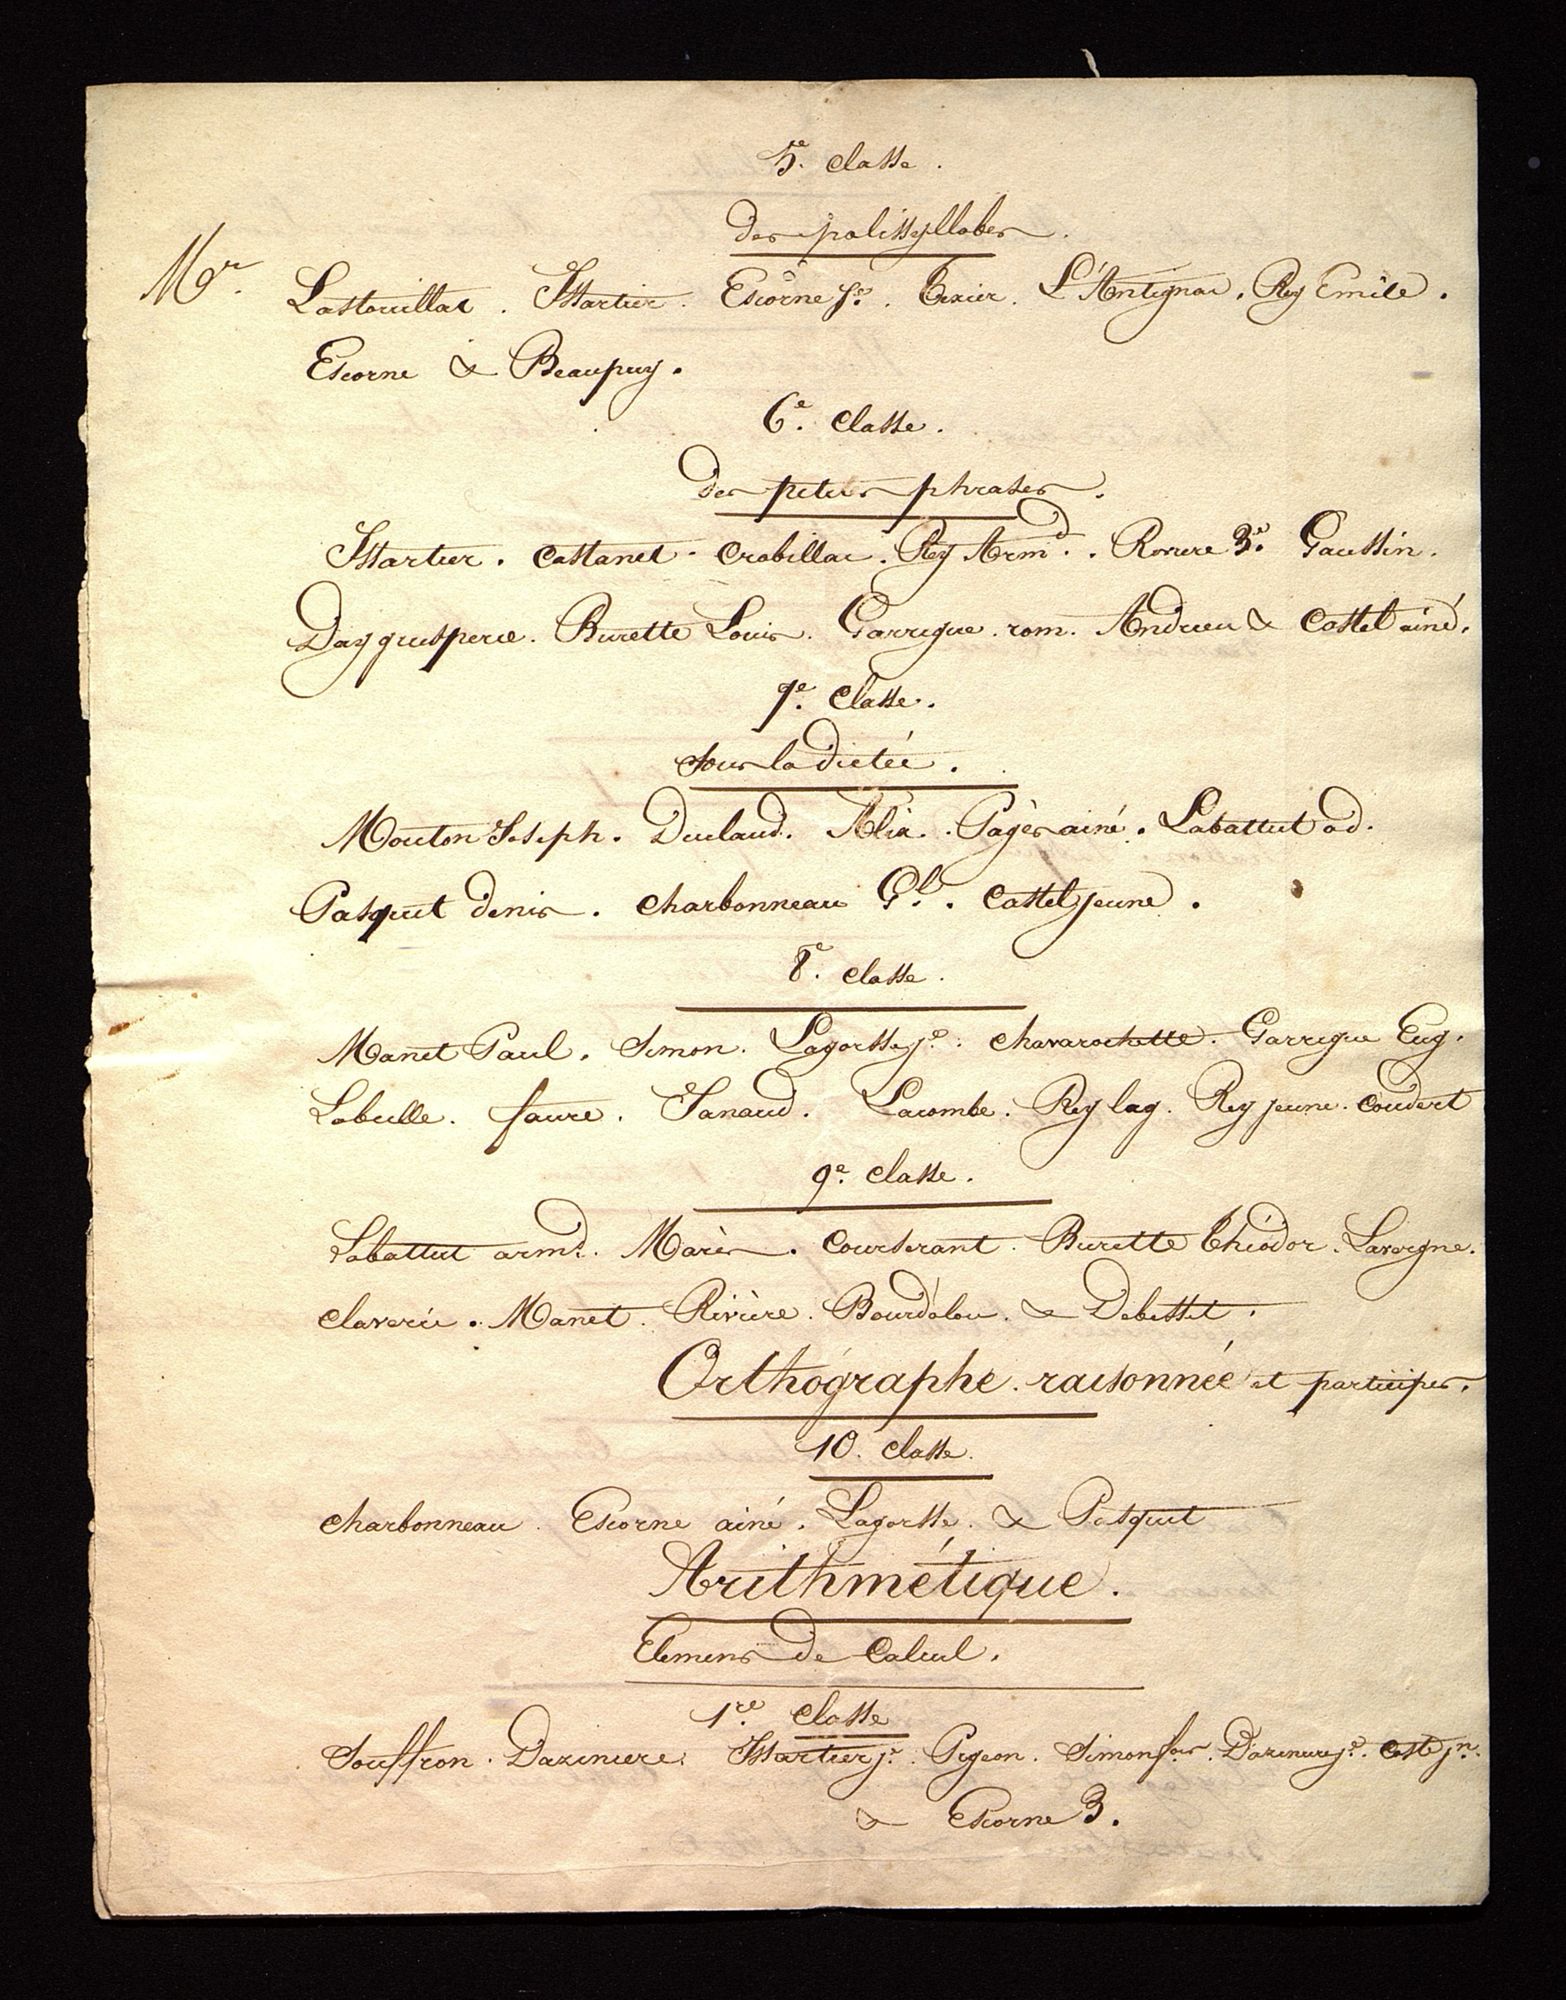 5e. classe.
des polissyllabes.
Mr. Lastouillac. Issartier. Escorne je. Texier. L'Antignac. Rey Emile.
Escorne & Beaupuy.
6e. classe.
des petites phrases.
Issartier. Castanet. Crabillac. Rey Armd. Roviere 3e. Gaussin.
Dayguesperce. Burette Louis. Garrigue. rom. Andrieu & Castel ainé.
7e. classe.
sous la dictée.
Mouton Joseph. Duclaud. Alix. Pagès ainé. Labattut ad.
Pasquet denis. Charbonneau Gl. Castel jeune.
8e. classe.
Manet Paul. Simon. Lagorsse je. Chavarochette. Garrigue Eug.
Labulle. faure. Janaud. Lacombe. Rey lag. Rey jeune. Coudert
9e. classe.
Labattut armd. Marès. Courserant. Burette Théodor. Lavergne.
Claverie. Manet. Rivière. Bourdelou. & Debesset.
Orthographe raisonnée et participes.
10. classe.
Charbonneau. Escorne ainé. Lagorsse. & Pasquet
Arithmétique.
Elemens de Calcul.
1re. classe
Souffron. Dazeniere. Issartier je. Pigeon. Simon fois. Dazeniere je. Caste jne.
& Escorne 3.